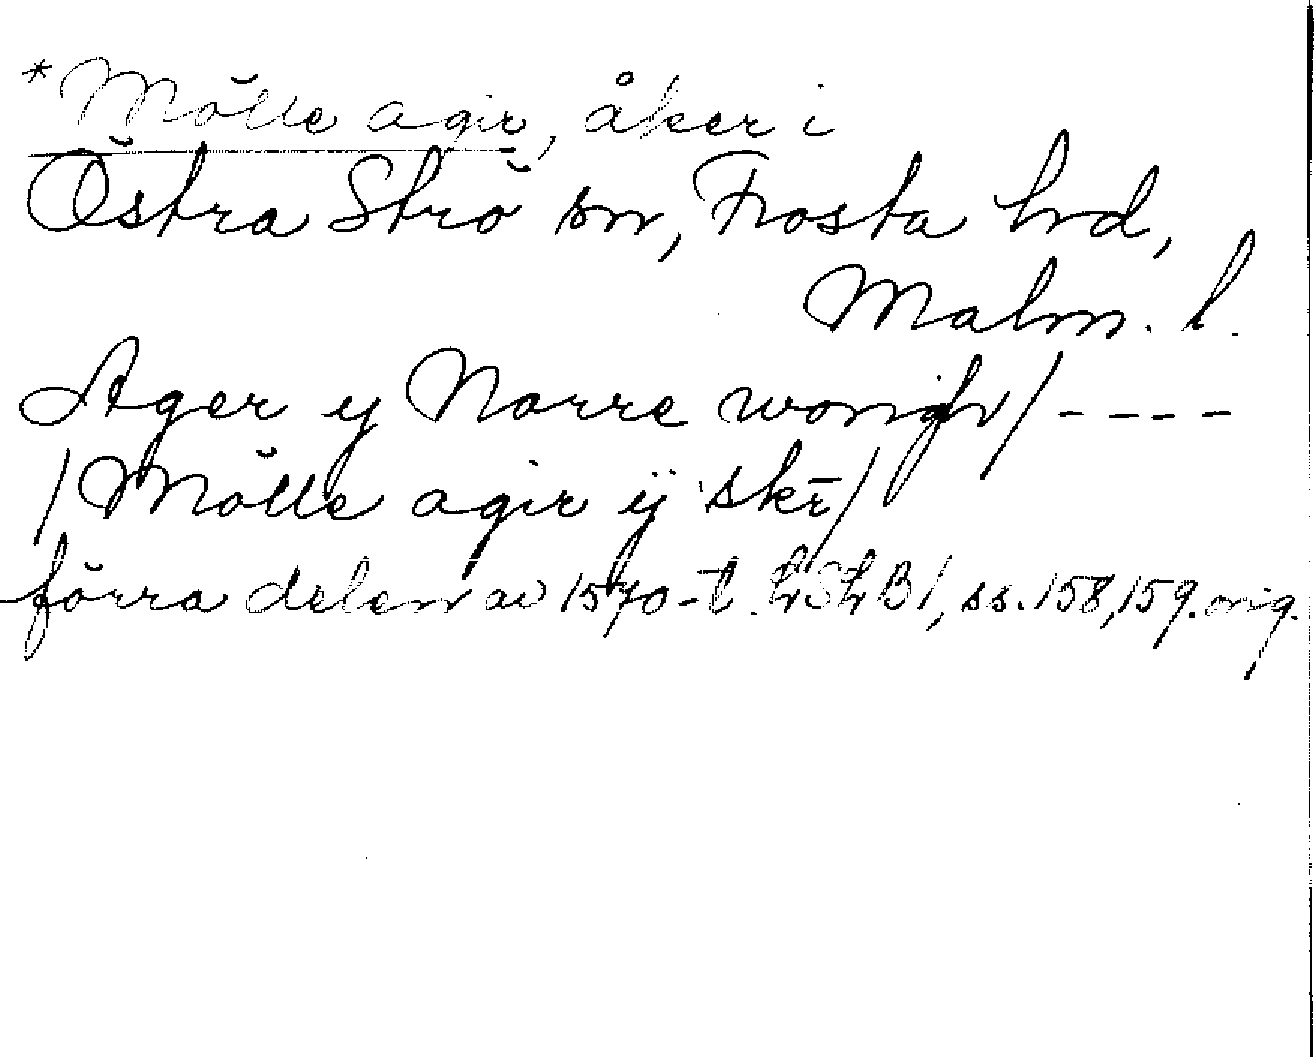 *Mölle agir, åker i
Östra Strö sn, Frosta hd,
Malm. l.
Ager y Norre wongh/----
/Mölle agir ÿ skr̄/
förra delen av 1570-t. LSLB1, ss. 158, 159. orig.